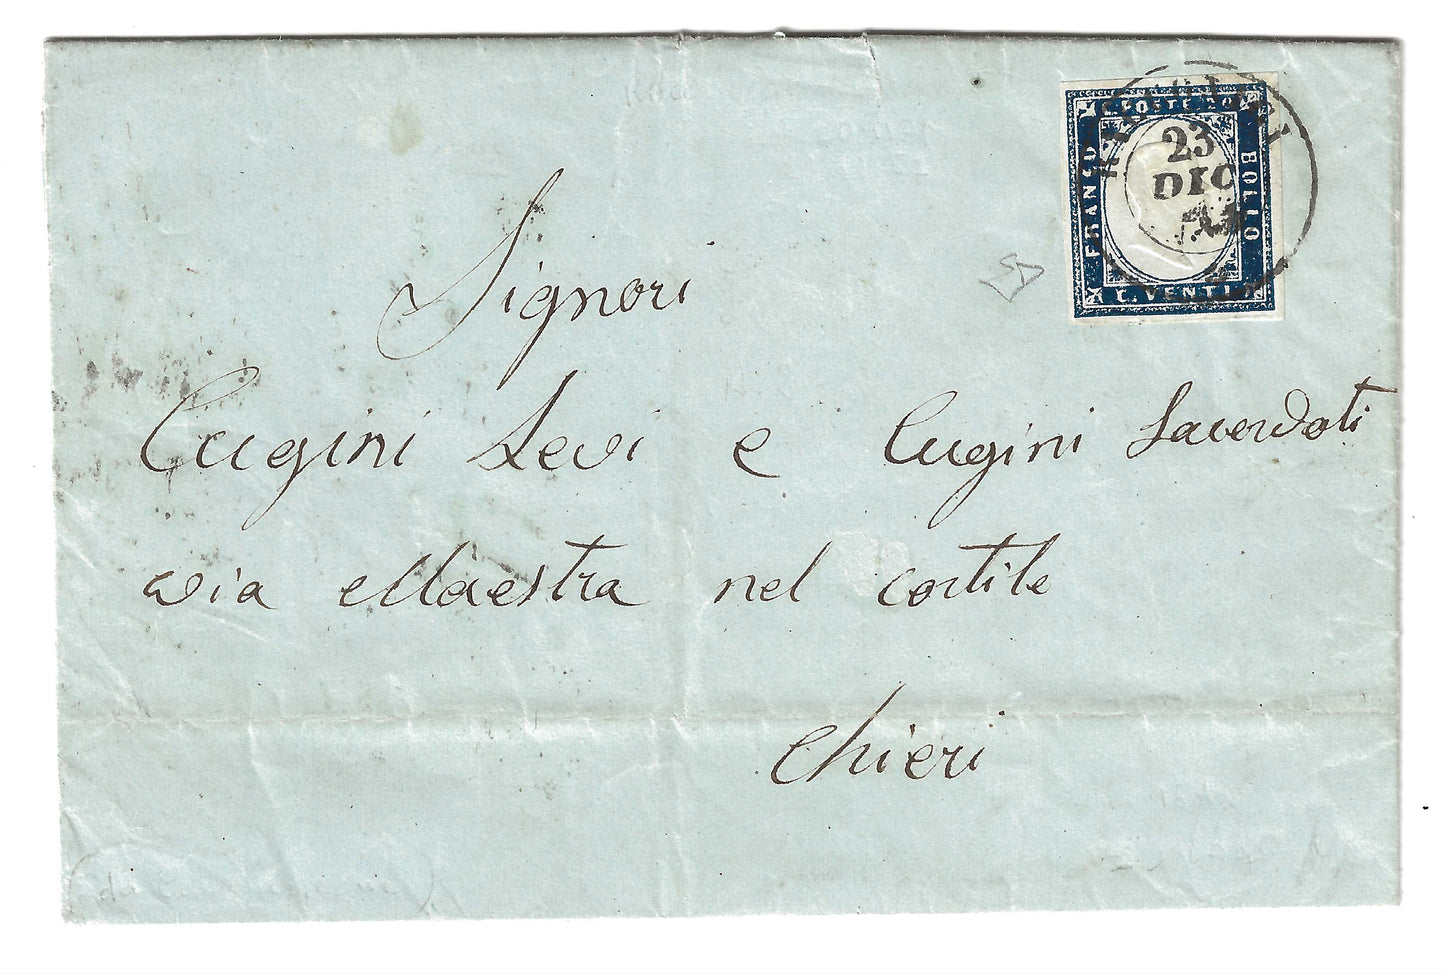 C. POSTE 20
FRANCO
BOLLO
C. VENTI
23
DIC
Signori
Cugini Levi e Cugini Sacerdoti
via Maestra nel cortile
Chieri